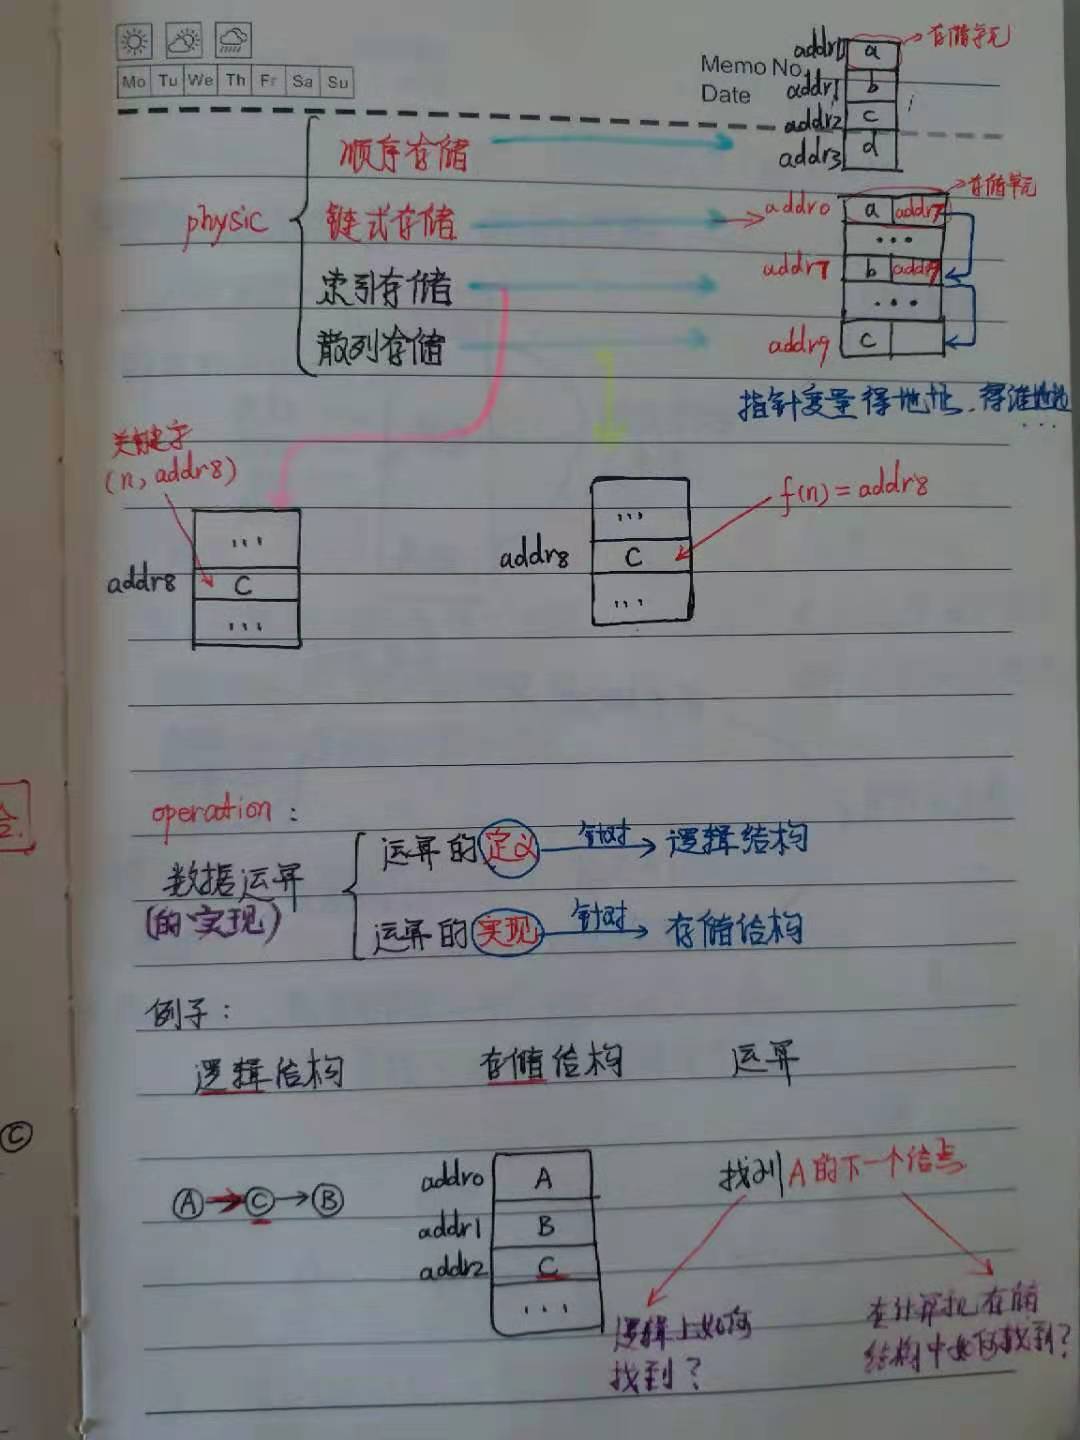 Mo Tu We Th Fr Sa Su
Memo No.
Date
addr0 a 存储单元
addr1 b
addr2 c
addr3 d
physic
顺序存储
链式存储
索引存储
散列存储
存储单元
addr0 a addr7
...
addr7 b addr9
...
addr9 c
指针变量得地址,得谁地址
...
关键字
(n, addr8)
...
addr8 C
...
...
addr8 C
...
f(n) = addr8
operation:
数据运算
(的实现)
运算的定义 针对 逻辑结构
运算的实现 针对 存储结构
例子:
逻辑结构 存储结构 运算
A C B
addr0 A
addr1 B
addr2 C
...
找到A的下一个结点
逻辑上如何
找到?
在计算机存储
结构中如何找到?
C